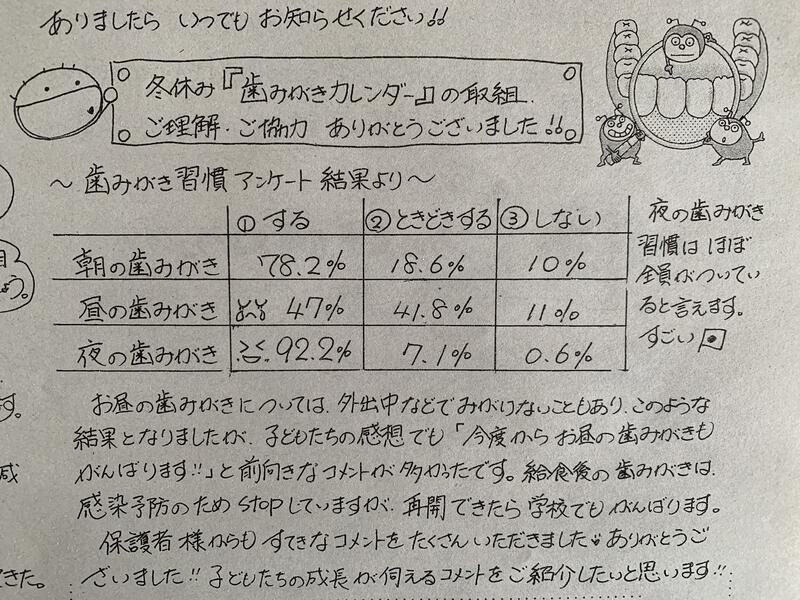 ありましたら いつでも お知らせください!!
冬休み『歯みがきカレンダー』の取組、
ご理解・ご協力 ありがとうございました!!
〜 歯みがき習慣 アンケート 結果より〜
① する ② ときどきする ③ しない
朝の歯みがき 78.2% 18.6% 10%
昼の歯みがき 47% 41.8% 11%
夜の歯みがき 92.2% 7.1% 0.6%
夜の歯みがき
習慣は ほぼ
全員がついてい
ると言えます。
すごい
お昼の歯みがきについては、外出中などでみがけないこともあり、このような
結果となりましたが、子どもたちの感想でも「今度から お昼の歯みがきも
がんばります!!」と前向きなコメントが多かったです。給食後の歯みがきは、
感染予防のため stopしていますが、再開できたら学校でも がんばります。
保護者様からも すてきなコメントを たくさんいただきました ありがとうご
ざいました!! 子どもたちの成長が伺えるコメントをご紹介したいと思います!!
う。
す。
きた。